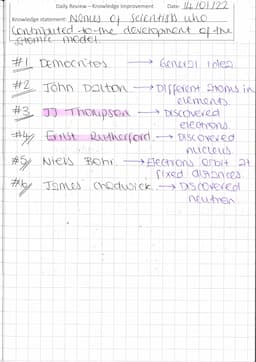 Daily Review – Knowledge Improvement Date: 14/01/22
Knowledge statement: Names of scientists who
contributed to the development of the
atomic model
#1 Democritos → General idea
#2 John Dalton → Different atoms in
elements.
#3 JJ Thompson → Discovered
electrons.
#4 Ernst Rutherford. → Discovered
nucleus.
#5 Niels Bohr. → Electrons orbit at
fixed distances.
#6 James Chadwick. → Discovered
neutron.